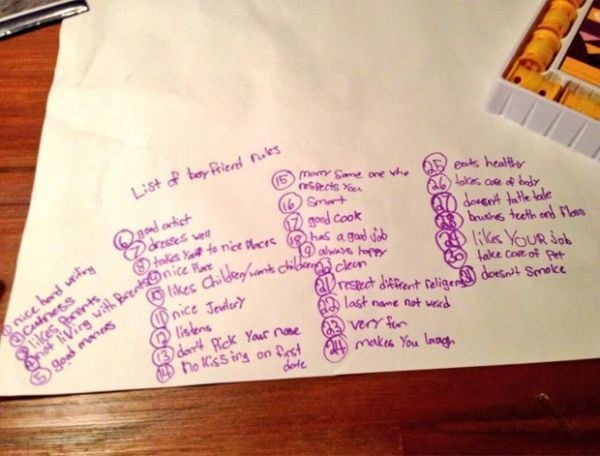 List of boyfriend rules
① nice hand writing
② cuteness
③ likes Parents
④ not living with Parents
⑤ good maners
⑥ good artist
⑦ dresses well
⑧ takes You to nice Places
⑨ nice Place
⑩ likes Children/wants children
⑪ nice Jewlery
⑫ listens
⑬ don't Pick Your nose
⑭ no Kissing on first
date
⑮ marry some one who
respects You
⑯ Smart
⑰ good cook
⑱ has a good job
⑲ always happy
clean
㉑ respect diffrent religens
㉒ last name not weird
㉓ very fun
㉔ makes You laugh
㉕ eats healthy
㉖ takes care of body
㉗ doesnt tattletale
㉘ brushes teeth and floss
㉙ likes YOUR job
㉚ take care of Pet
㉛ doesn't Smoke